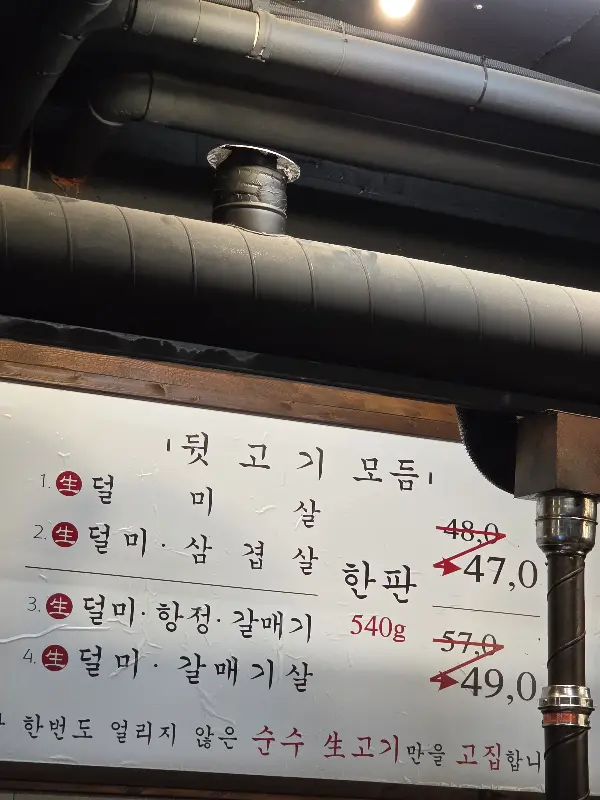 뒷고기모듬
1. 生 덜미살
2. 生 덜미·삼겹살
3. 生 덜미·항정·갈매기
4. 生 덜미·갈매기살
한판
540g
48,0
47,0
57,0
49,0
한번도 얼리지 않은 순수 生고기만을 고집합니